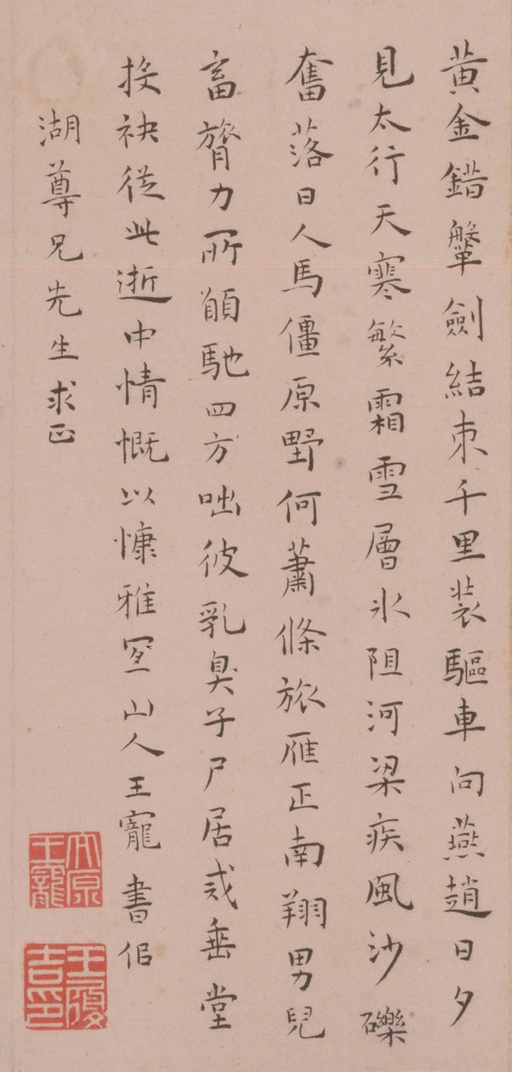 黃金錯鞶劍結束千里裝驅車向燕趙日夕
見太行天寒繁霜雪層冰阻河梁疾風沙礫
奮落日人馬僵原野何蕭條旅雁正南翔男兒
富膂力所願馳四方咄彼乳臭子尸居戒垂堂
投袂從此逝中情慨以慷雅宜山人王寵書佀
湖尊兄先生求正
太原王寵
王履吉印